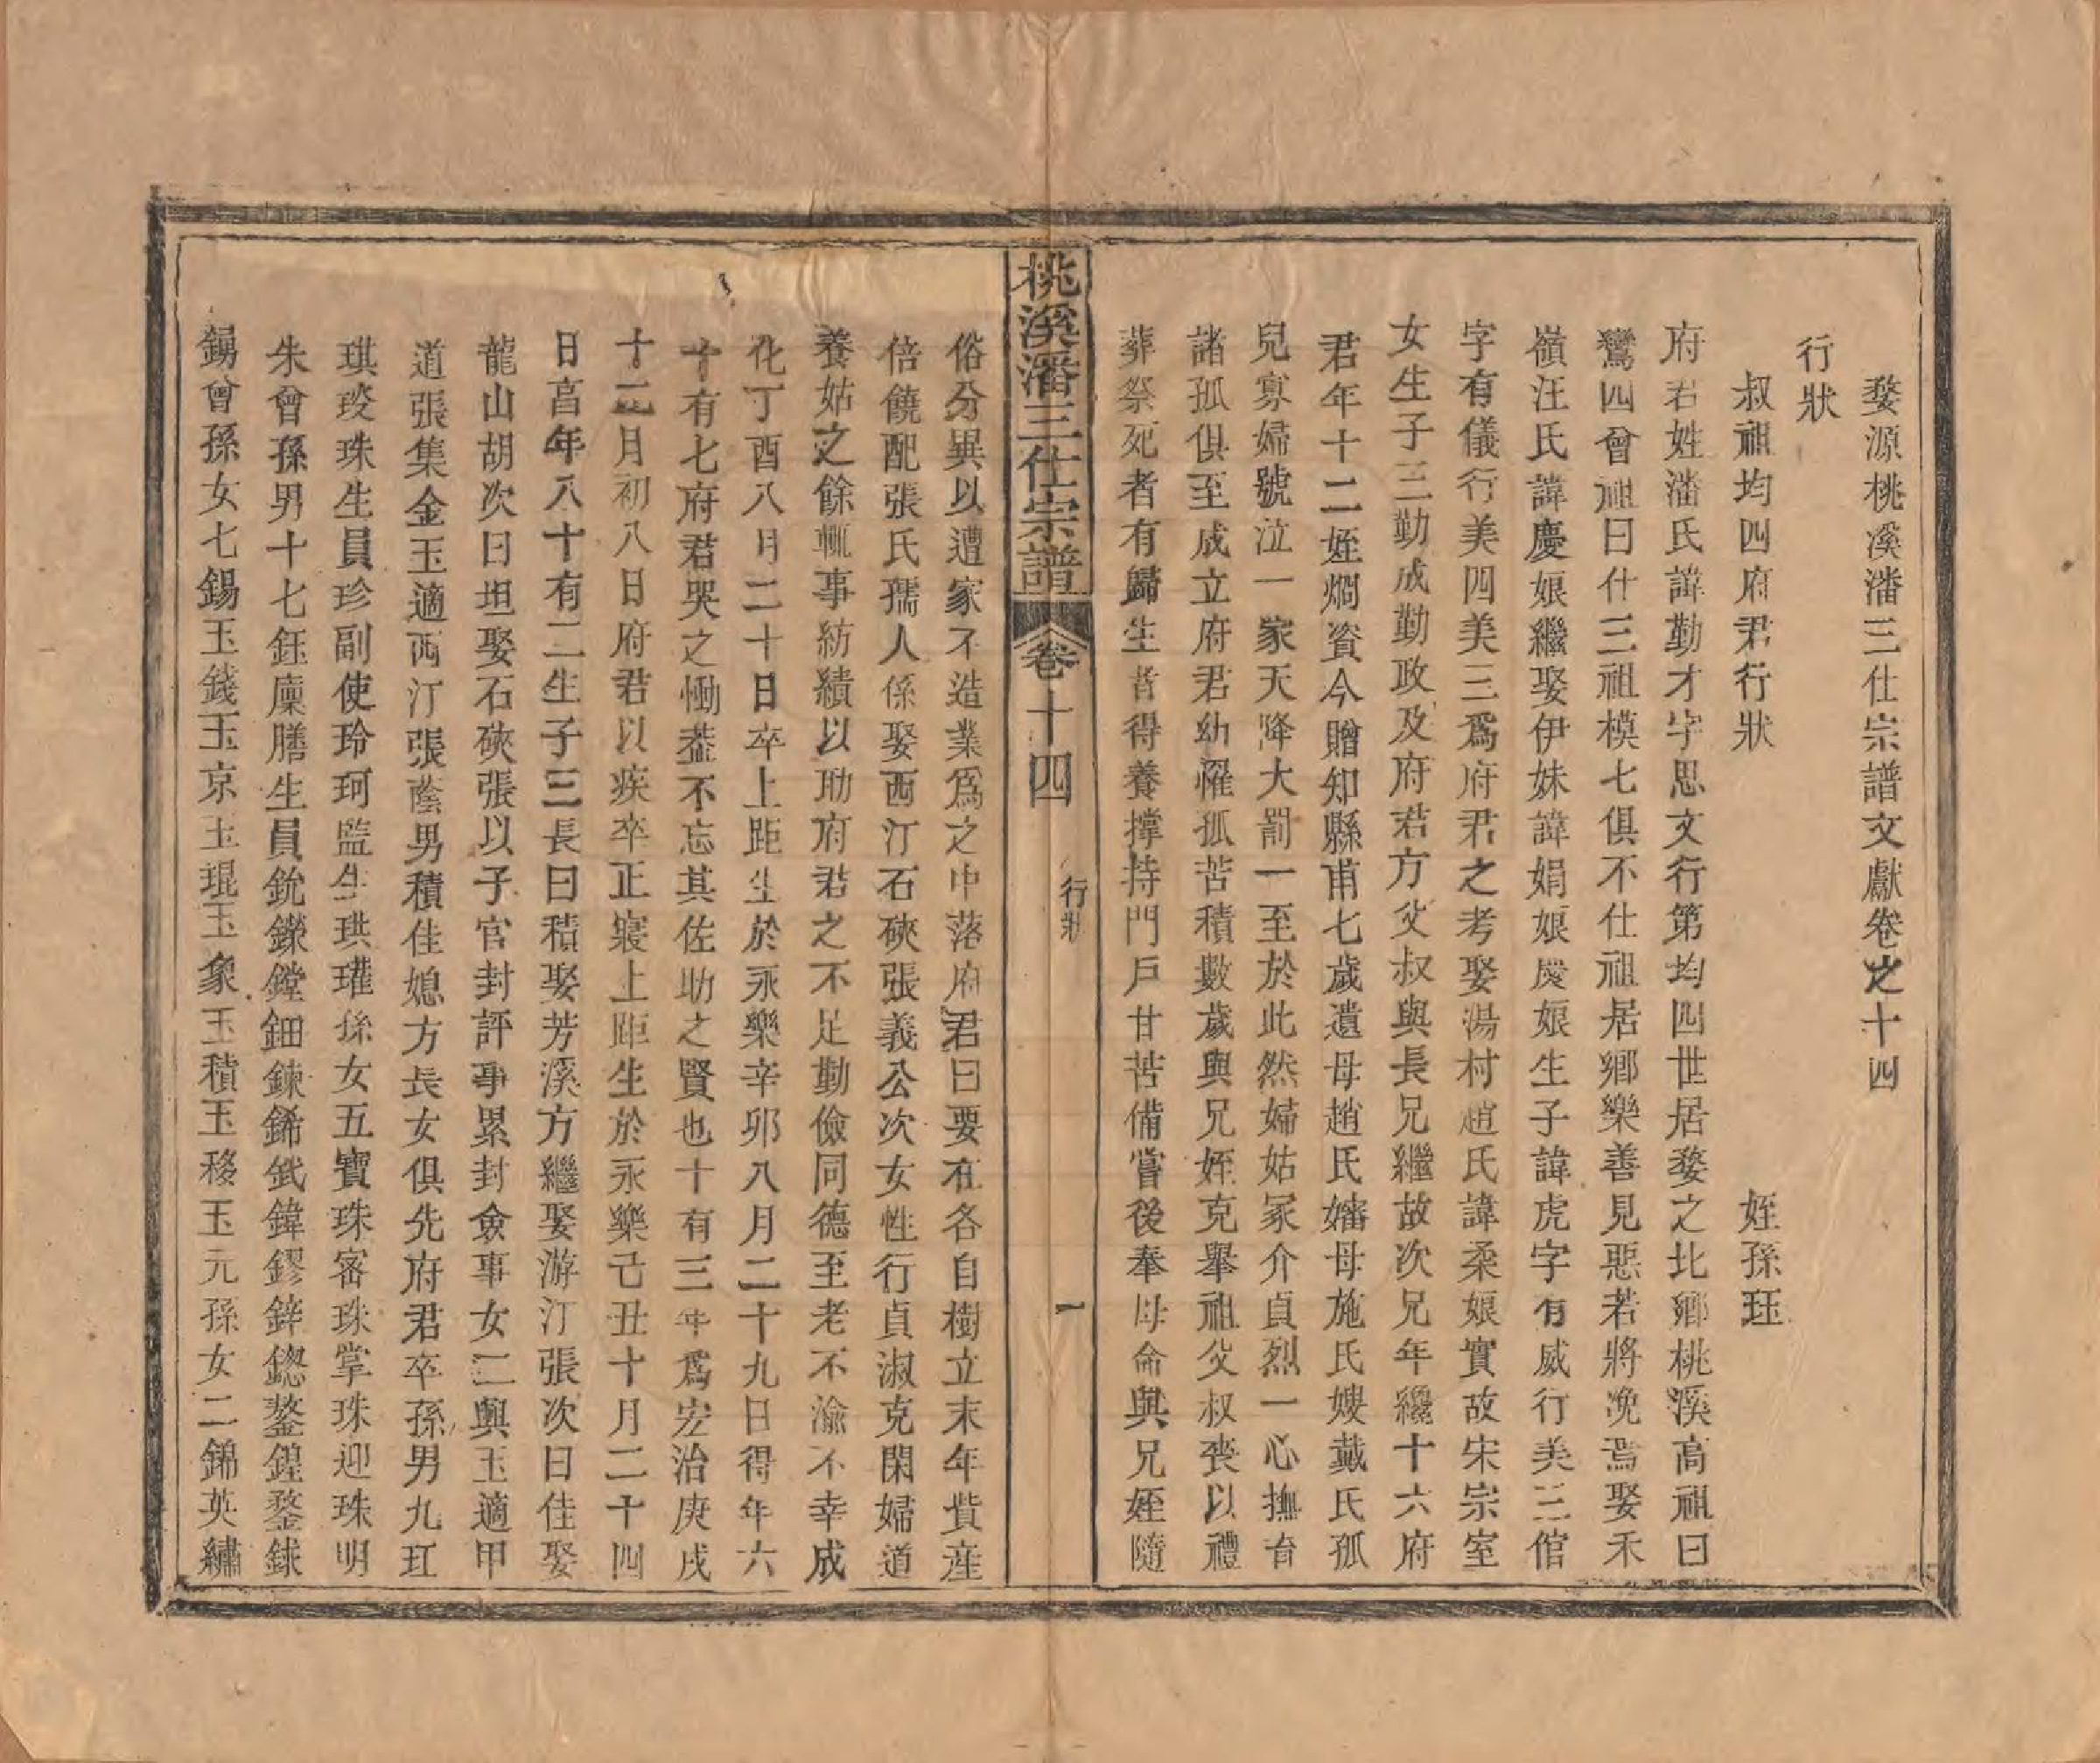 婺源桃溪潘三仕宗譜文獻卷之十四
行狀
叔祖均四府君行狀
姪孫珏
府君姓潘氏諱勤才字思文行第均四世居婺之北鄉桃溪高祖曰
鸞四曾祖曰仕三祖模七俱不仕祖居鄉樂善見惡若將凂焉娶禾
嶺汪氏諱慶娘繼娶伊妹諱娟娘慶娘生子諱虎字有威行美三倌
字有儀行美四美三爲府君之考娶湯村趙氏諱柔娘實故宋宗室
女生子三勤成勤政及府君方父叔與長兄繼故次兄年纔十六府
君年十二姪烱資今贈知縣甫七歲遺母趙氏嬸母施氏嫂戴氏孤
兒寡婦號泣一家天降大罰一至於此然婦姑冢介貞烈一心撫育
諸孤俱至成立府君幼罹孤苦積數歲與兄姪克舉祖父叔喪以禮
葬祭死者有歸生者得養撐持門戶甘苦備嘗後奉母命與兄姪隨
桃溪潘三仕宗譜
卷十四
行狀
一
俗分異以遭家不造業爲之中落府君曰要在各自樹立末年貲産
倍饒配張氏孺人係娶西汀石硤張義公次女性行貞淑克閑婦道
養姑之餘輒事紡績以助府君之不足勤儉同德至老不渝不幸成
化丁酉八月二十日卒上距生於永樂辛卯八月二十九日得年六
十有七府君哭之慟葢不忘其佐助之賢也十有三年爲宏治庚戌
十二月初八日府君以疾卒正寢上距生於永樂己丑十月二十四
日畗年八十有二生子三長曰積娶芳溪方繼娶游汀張次曰佳娶
龍山胡次曰坦娶石硤張以子官封評事累封僉事女二輿玉適甲
道張集金玉適西汀張蔭男積佳媳方長女俱先府君卒孫男九玒
琪琰珠生員珍副使玲珂監生珙瓘孫女五寶珠宻珠掌珠迎珠明
朱曾孫男十七鈺廩膳生員銃鑅鏜鈿鍊鏴錻鍏鏐鋅鍯鏊鍠鍪銶
鍚曾孫女七錫玉錢玉京玉琨玉象玉積玉移玉元孫女二錦英繡